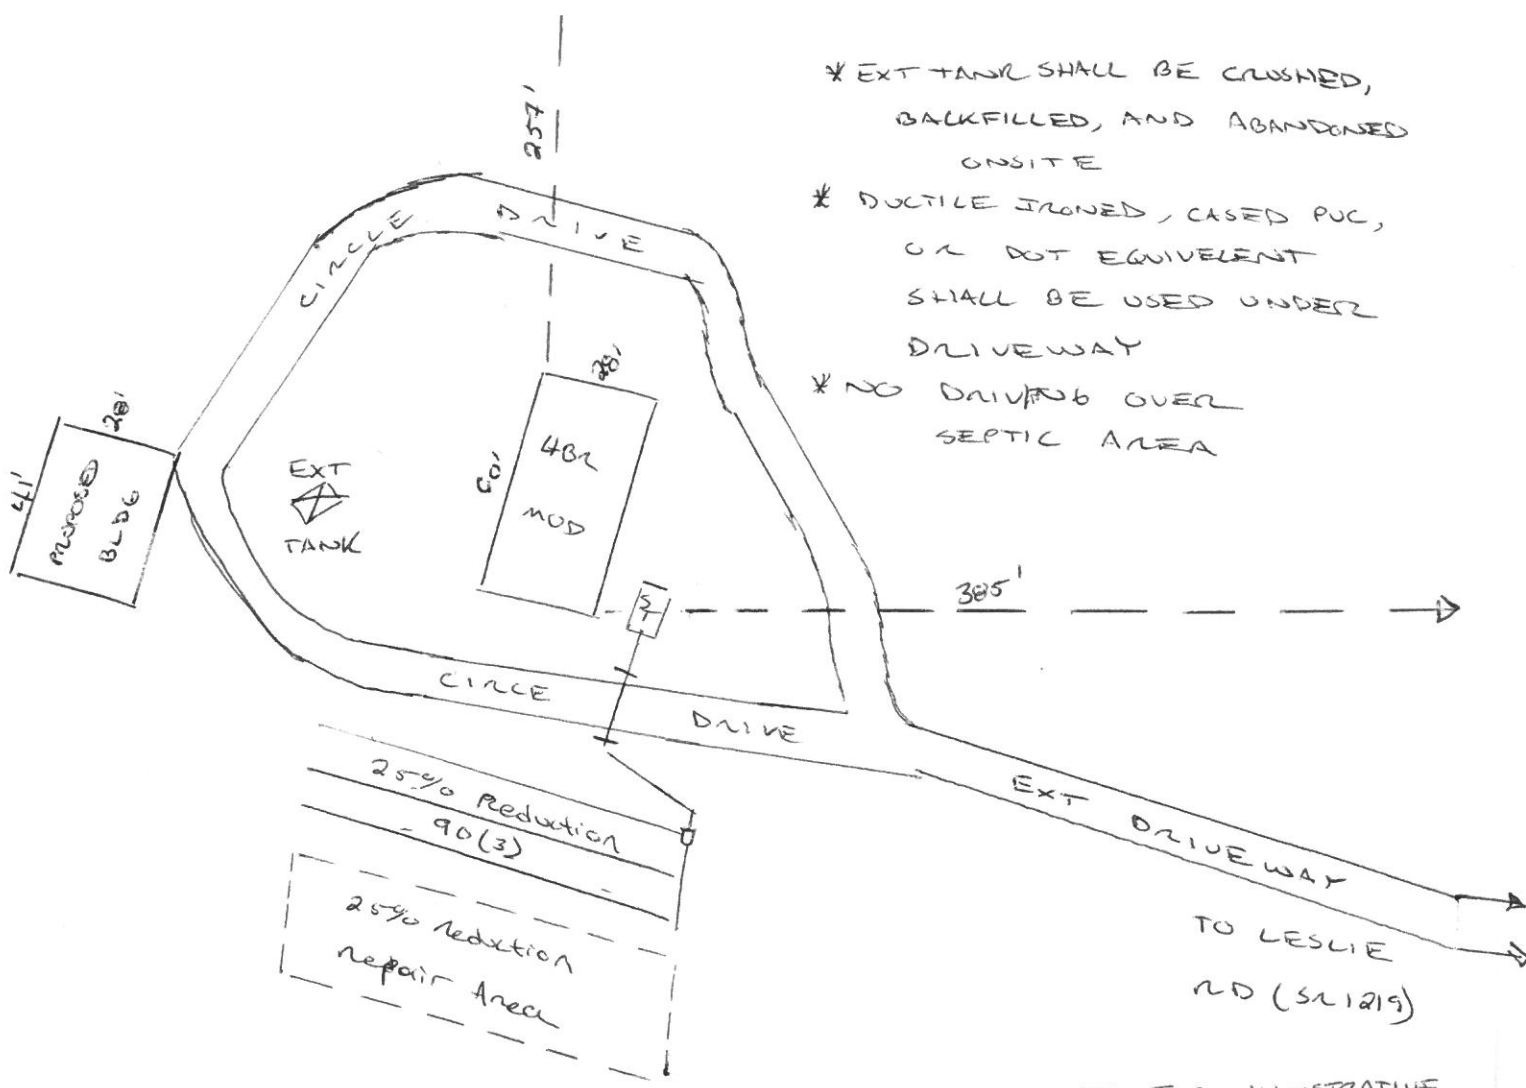 257'
* EXT TANK SHALL BE CRUSHED,
BACKFILLED, AND ABANDONED
ONSITE
* DUCTILE IRONED, CASED PVC,
OR DOT EQUIVELENT
SHALL BE USED UNDER
DRIVEWAY
* NO DRIVING OVER
SEPTIC AREA
CIRCLE
DRIVE
28'
60'
4BR
MOD
28'
41'
PROPOSED
BLDG
EXT
TANK
ST
385'
CIRCE
DRIVE
EXT
DRIVEWAY
25% Reduction
90(3)
25% reduction
repair Area
TO LESLIE
RD (SR 1219)